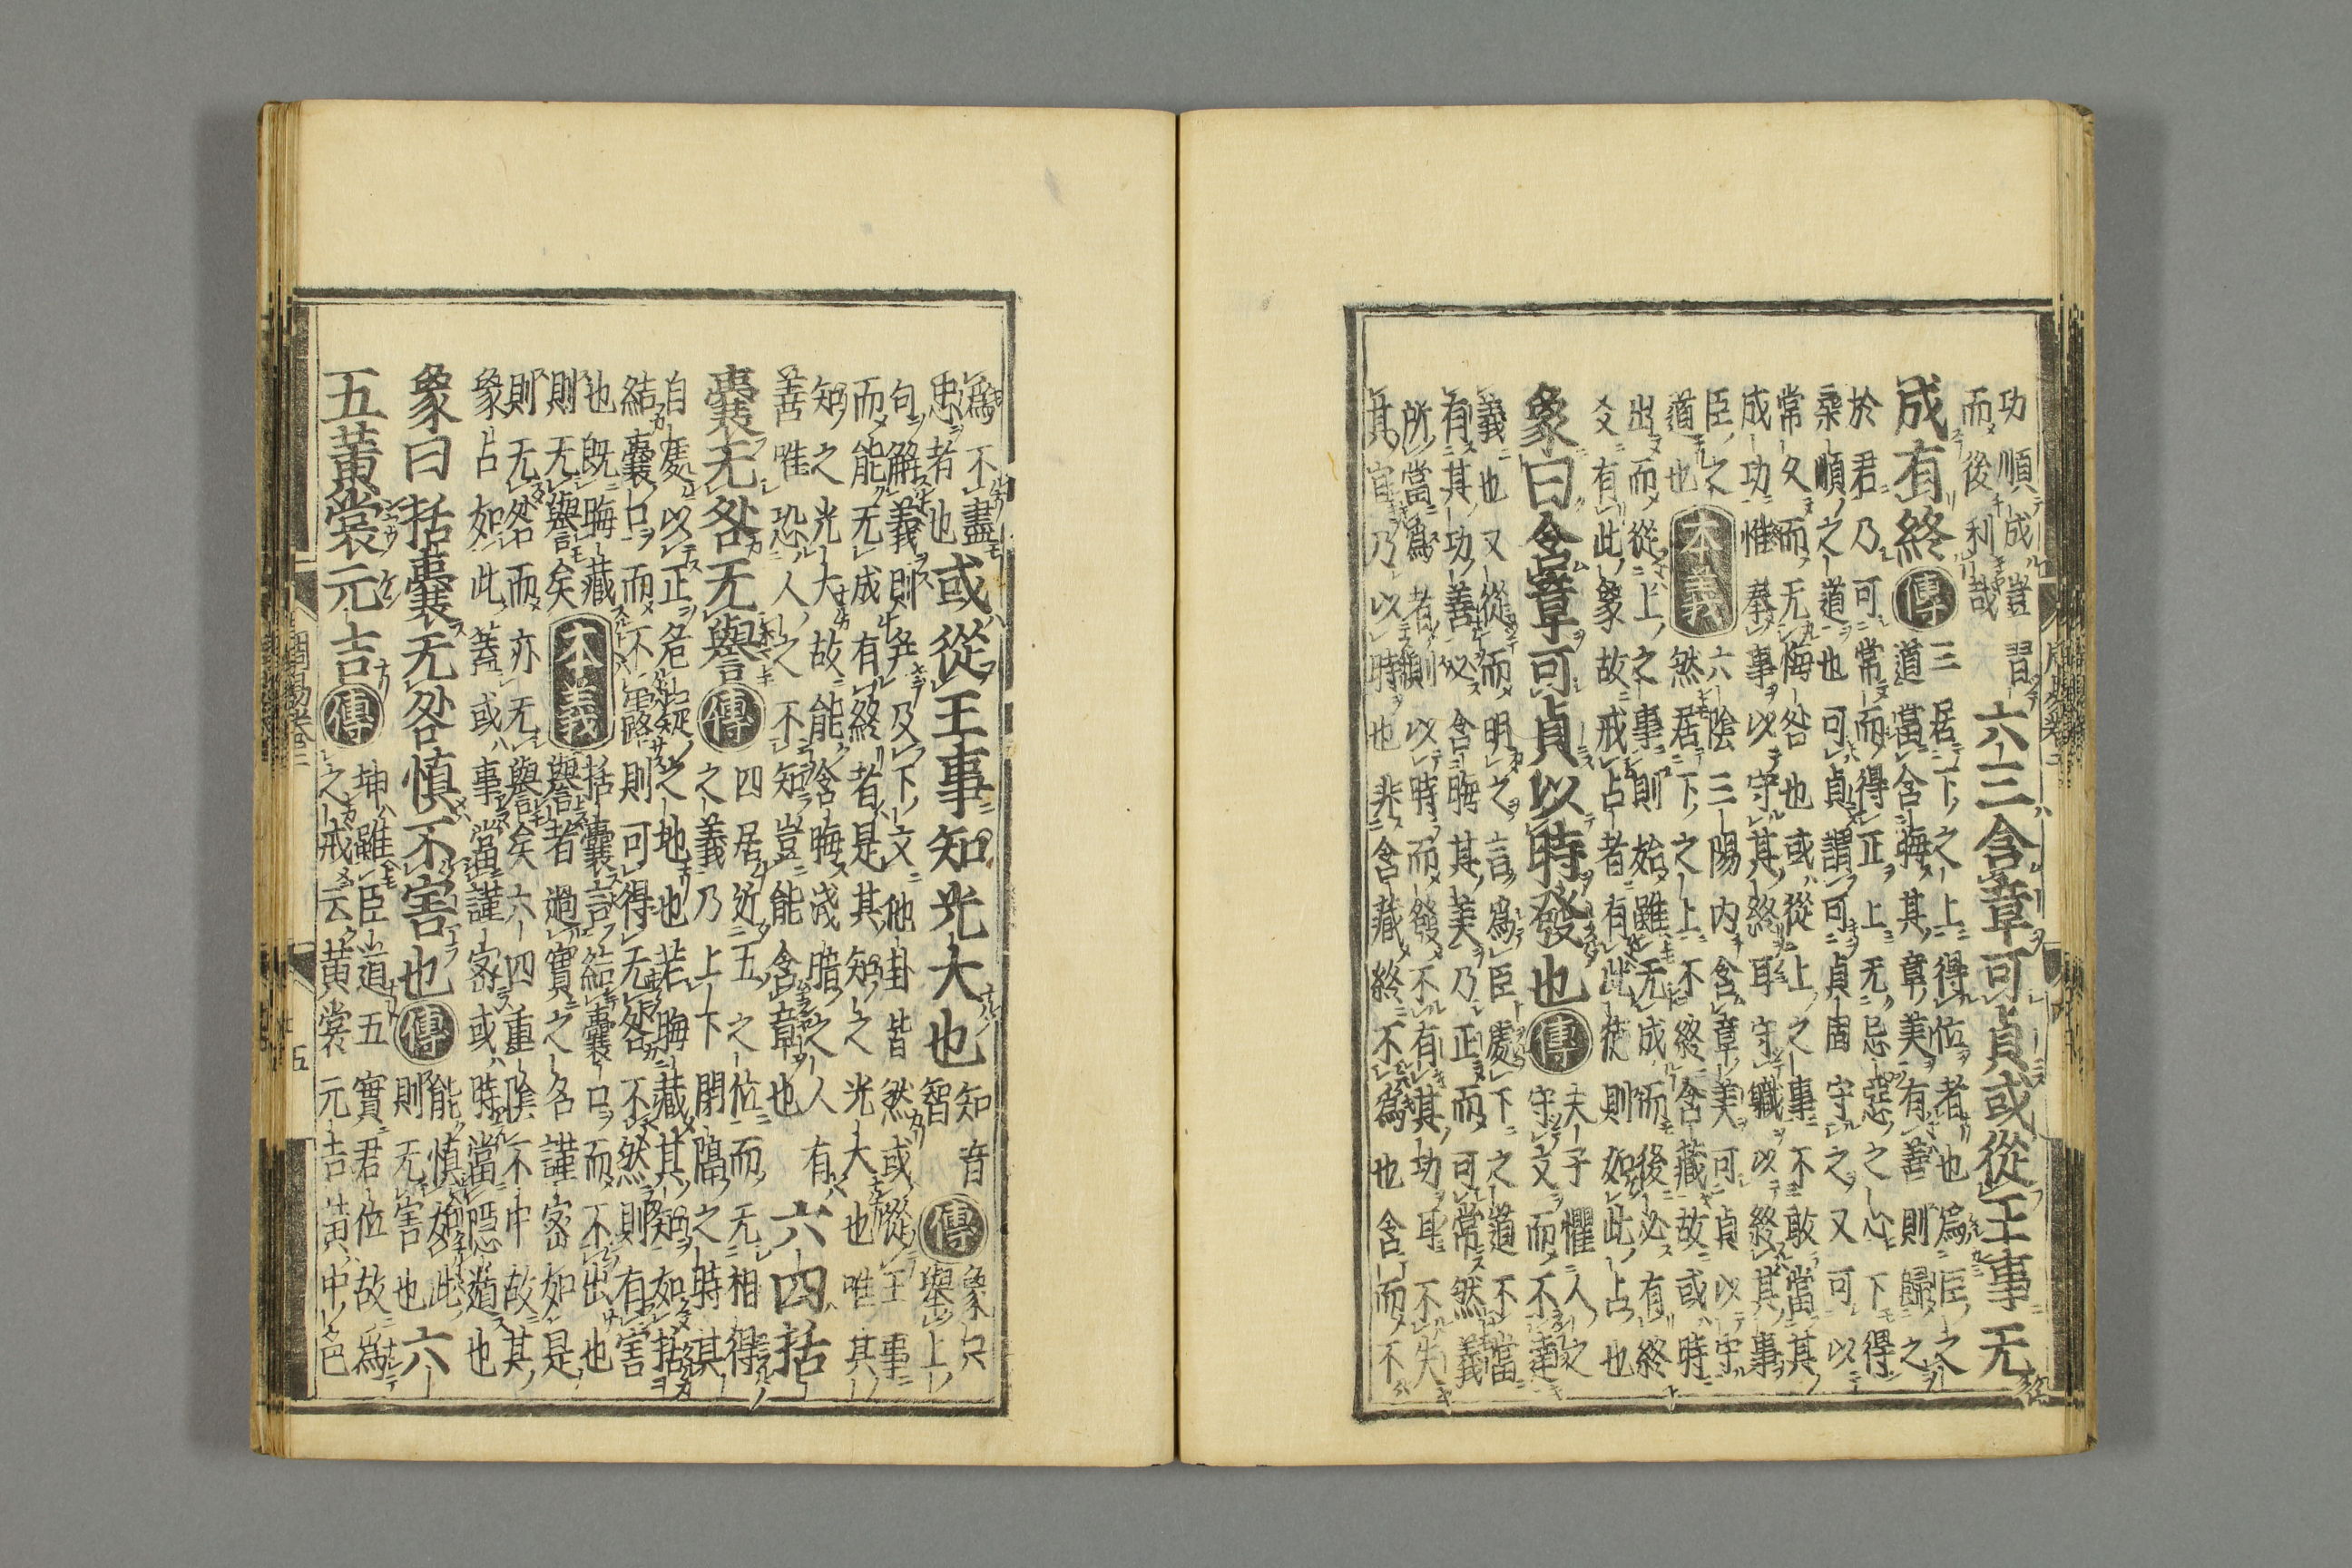 功順成豈習
而後利哉
六三含章可貞或從王事无
成有終傳
三居下之上得位者也爲臣之
道當含晦其章美有善則歸之
於君乃可常而得正上无忌惡之心下得
柔順之道也可貞謂可貞固守之又可以
常久而无悔咎也或從上之事不敢當其
成功惟奉事以守其終耳守職以終其事
臣之
道也
本義
六陰三陽内含章美可貞以守
然居下之上不終含藏故或時
出而從上之事則始雖无成而後必有終
爻有此象故戒占者有此德則如此占也
象曰含章可貞以時發也傳
夫子懼人之
守文而不達
義也又從而明之言爲臣處下之道不當
有其功善必含晦其美乃正而可常然義
所當爲者則以時而發不有其功耳不失
其宜乃以時也非含藏終不爲也含而不
爲不盡
忠者也
或從王事知光大也
知音
智
傳
象只
舉上
句解義則并及下文他卦皆然或從王事
而能无成有終者是其知之光大也唯其
知之光大故能含晦淺暗之人有
善唯恐人之不知豈能含章也
六四括
囊无咎无譽傳
四居近五之位而无相得
之義乃上下閉隔之時其
自處以正危疑之地也若晦藏其知如括
結囊口而不露則可得无咎不然則有害
也既晦藏
則无譽矣
本義
括囊言結囊口而不出也
譽者過實之名謹密如是
則无咎而亦无譽矣六四重陰不中故其
象占如此蓋或事當謹密或時當隱遁也
象曰括囊无咎慎不害也傳
能慎如此
則无害也
六
五黃裳元吉傳
坤雖臣道五實君位故爲
之戒云黃裳元吉黃中色
周易卷三
五